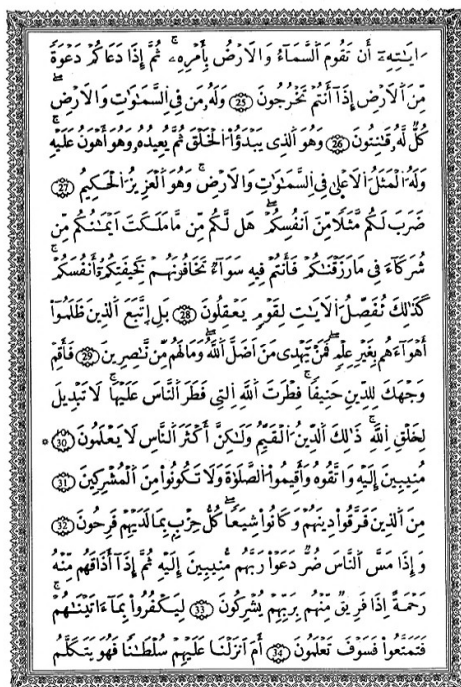 ءَايَٰتِهِۦٓ أَن تَقُومَ اَ۬لسَّمَآءُ وَالَارْضُ بِأَمْرِهِۦۖ ثُمَّ إِذَا دَعَاكُمْ دَعْوَةٗ
مِّنَ اَ۬لَارْضِ إِذَآ أَنتُمْ تَخْرُجُونَ 25 وَلَهُۥ مَن فِى اِ۬لسَّمَٰوَٰتِ وَالَارْضِۖ
كُلّٞ لَّهُۥ قَٰنِتُونَ 26 وَهُوَ اَ۬لذِى يَبْدَؤُاْ اُ۬لْخَلْقَ ثُمَّ يُعِيدُهُۥ وَهُوَ أَهْوَنُ عَلَيْهِۖ
وَلَهُ اُ۬لْمَثَلُ اُ۬لَاعْلَىٰ فِى اِ۬لسَّمَٰوَٰتِ وَالَارْضِۖ وَهُوَ اَ۬لْعَزِيزُ اُ۬لْحَكِيمُ 27
ضَرَبَ لَكُم مَّثَلٗا مِّنَ اَنفُسِكُمْۖ هَل لَّكُم مِّن مَّا مَلَكَتَ اَيْمَٰنُكُم مِّن
شُرَكَآءَ فِى مَا رَزَقْنَٰكُمْ فَأَنتُمْ فِيهِ سَوَآءٞ تَخَافُونَهُمْ كَخِيفَتِكُمُۥٓ أَنفُسَكُمْۖ
كَذَٰلِكَ نُفَصِّلُ اُ۬لَايَٰتِ لِقَوْمٖ يَعْقِلُونَ 28 بَلِ اِ۪تَّبَعَ اَ۬لذِينَ ظَلَمُوٓاْ
أَهْوَآءَهُم بِغَيْرِ عِلْمٖۖ فَمَنْ يَّهْدِى مَنَ اَضَلَّ اَ۬للَّهُۖ وَمَا لَهُم مِّن نَّٰصِرِينَ 29 فَأَقِمْ
وَجْهَكَ لِلدِّينِ حَنِيفٗاۖ فِطْرَتَ اَ۬للَّهِ اِ۬لتِى فَطَرَ اَ۬لنَّاسَ عَلَيْهَاۖ لَا تَبْدِيلَ
لِخَلْقِ اِ۬للَّهِۖ ذَٰلِكَ اَ۬لدِّينُ اُ۬لْقَيِّمُ وَلَٰكِنَّ أَكْثَرَ اَ۬لنَّاسِ لَا يَعْلَمُونَ 30
مُنِيبِينَ إِلَيْهِ وَاتَّقُوهُ وَأَقِيمُواْ اُ۬لصَّلَوٰةَ وَلَا تَكُونُواْ مِنَ اَ۬لْمُشْرِكِينَ 31
مِنَ اَ۬لذِينَ فَرَّقُواْ دِينَهُمْ وَكَانُواْ شِيَعٗاۖ كُلُّ حِزْبِۢ بِمَا لَدَيْهِمْ فَرِحُونَ 32
وَإِذَا مَسَّ اَ۬لنَّاسَ ضُرّٞ دَعَوْاْ رَبَّهُم مُّنِيبِينَ إِلَيْهِ ثُمَّ إِذَآ أَذَاقَهُم مِّنْهُ
رَحْمَةً اِذَا فَرِيقٞ مِّنْهُم بِرَبِّهِمْ يُشْرِكُونَ 33 لِيَكْفُرُواْ بِمَآ ءَاتَيْنَٰهُمْۖ
فَتَمَتَّعُواْ فَسَوْفَ تَعْلَمُونَ 34 أَمَ اَنزَلْنَا عَلَيْهِمْ سُلْطَٰنٗا فَهُوَ يَتَكَلَّمُ